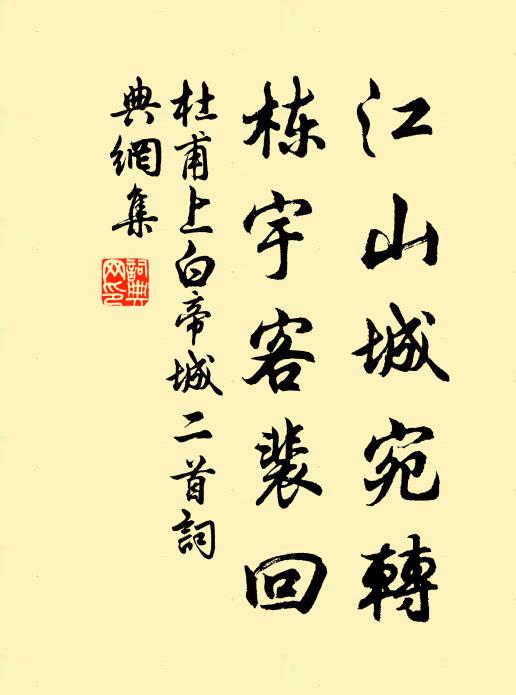 江山城宛轉
棟宇客裴回
杜甫上白帝城二首詞
典網集
詞典
网印